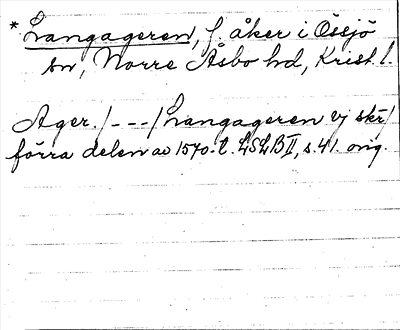 *Langageren, f. åker i Össjö
sn, Norre Åsbo hd, Krist. l.
Ager. /---/ Langageren vj skr/
förra delen av 1570-t. LSLB II, s. 41. orig.